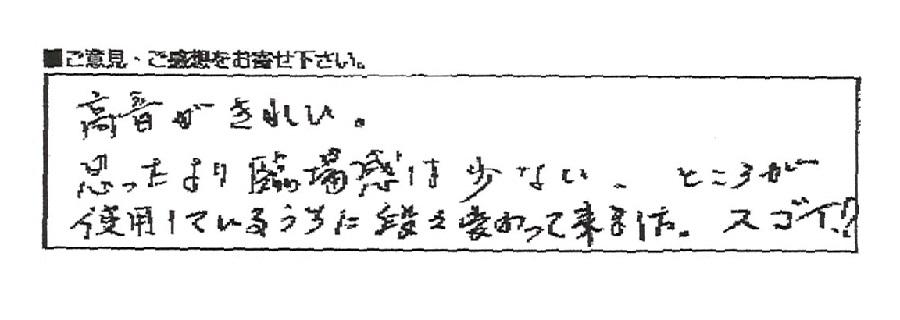 ■ご意見・ご感想をお寄せ下さい。
高音がきれい。
思ったより臨場感は少ない、ところが
使用しているうちに段々変わって来ました。スゴイ!?